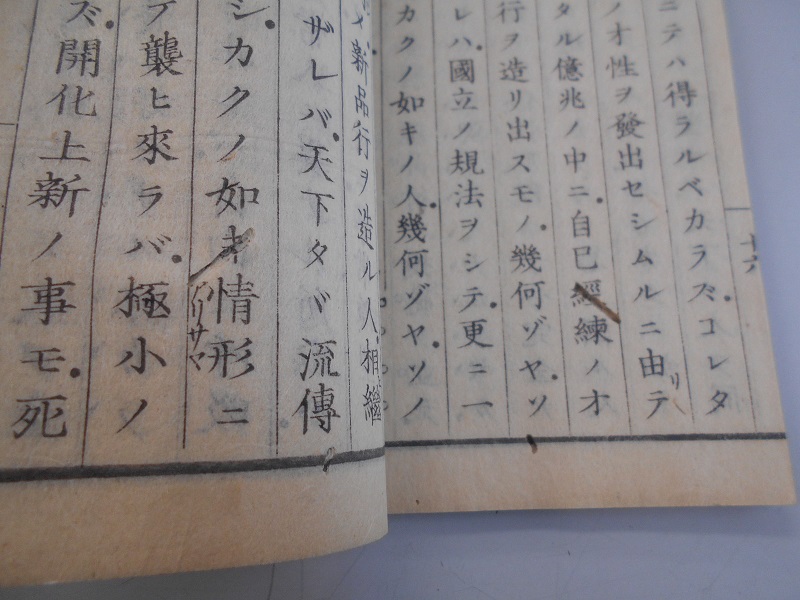 十六
ニテハ得ラルベカラズ。コレタ
ノオ性ヲ發出セシムルニ由リテ
タル億兆ノ中ニ。自己經練ノオ
行ヲ造リ出スモノ。幾何ゾヤ。ソ
レハ。國立ノ規法ヲシテ。更ニ一
カクノ如キノ人。幾何ゾヤ。ソノ
新品行ヲ造ル人。相繼
ザレバ。天下タヾ流傳
シ。カクノ如キ情形ニ
アリサマ
テ襲ヒ來ラバ。極小ノ
ズ。開化上新ノ事モ。死